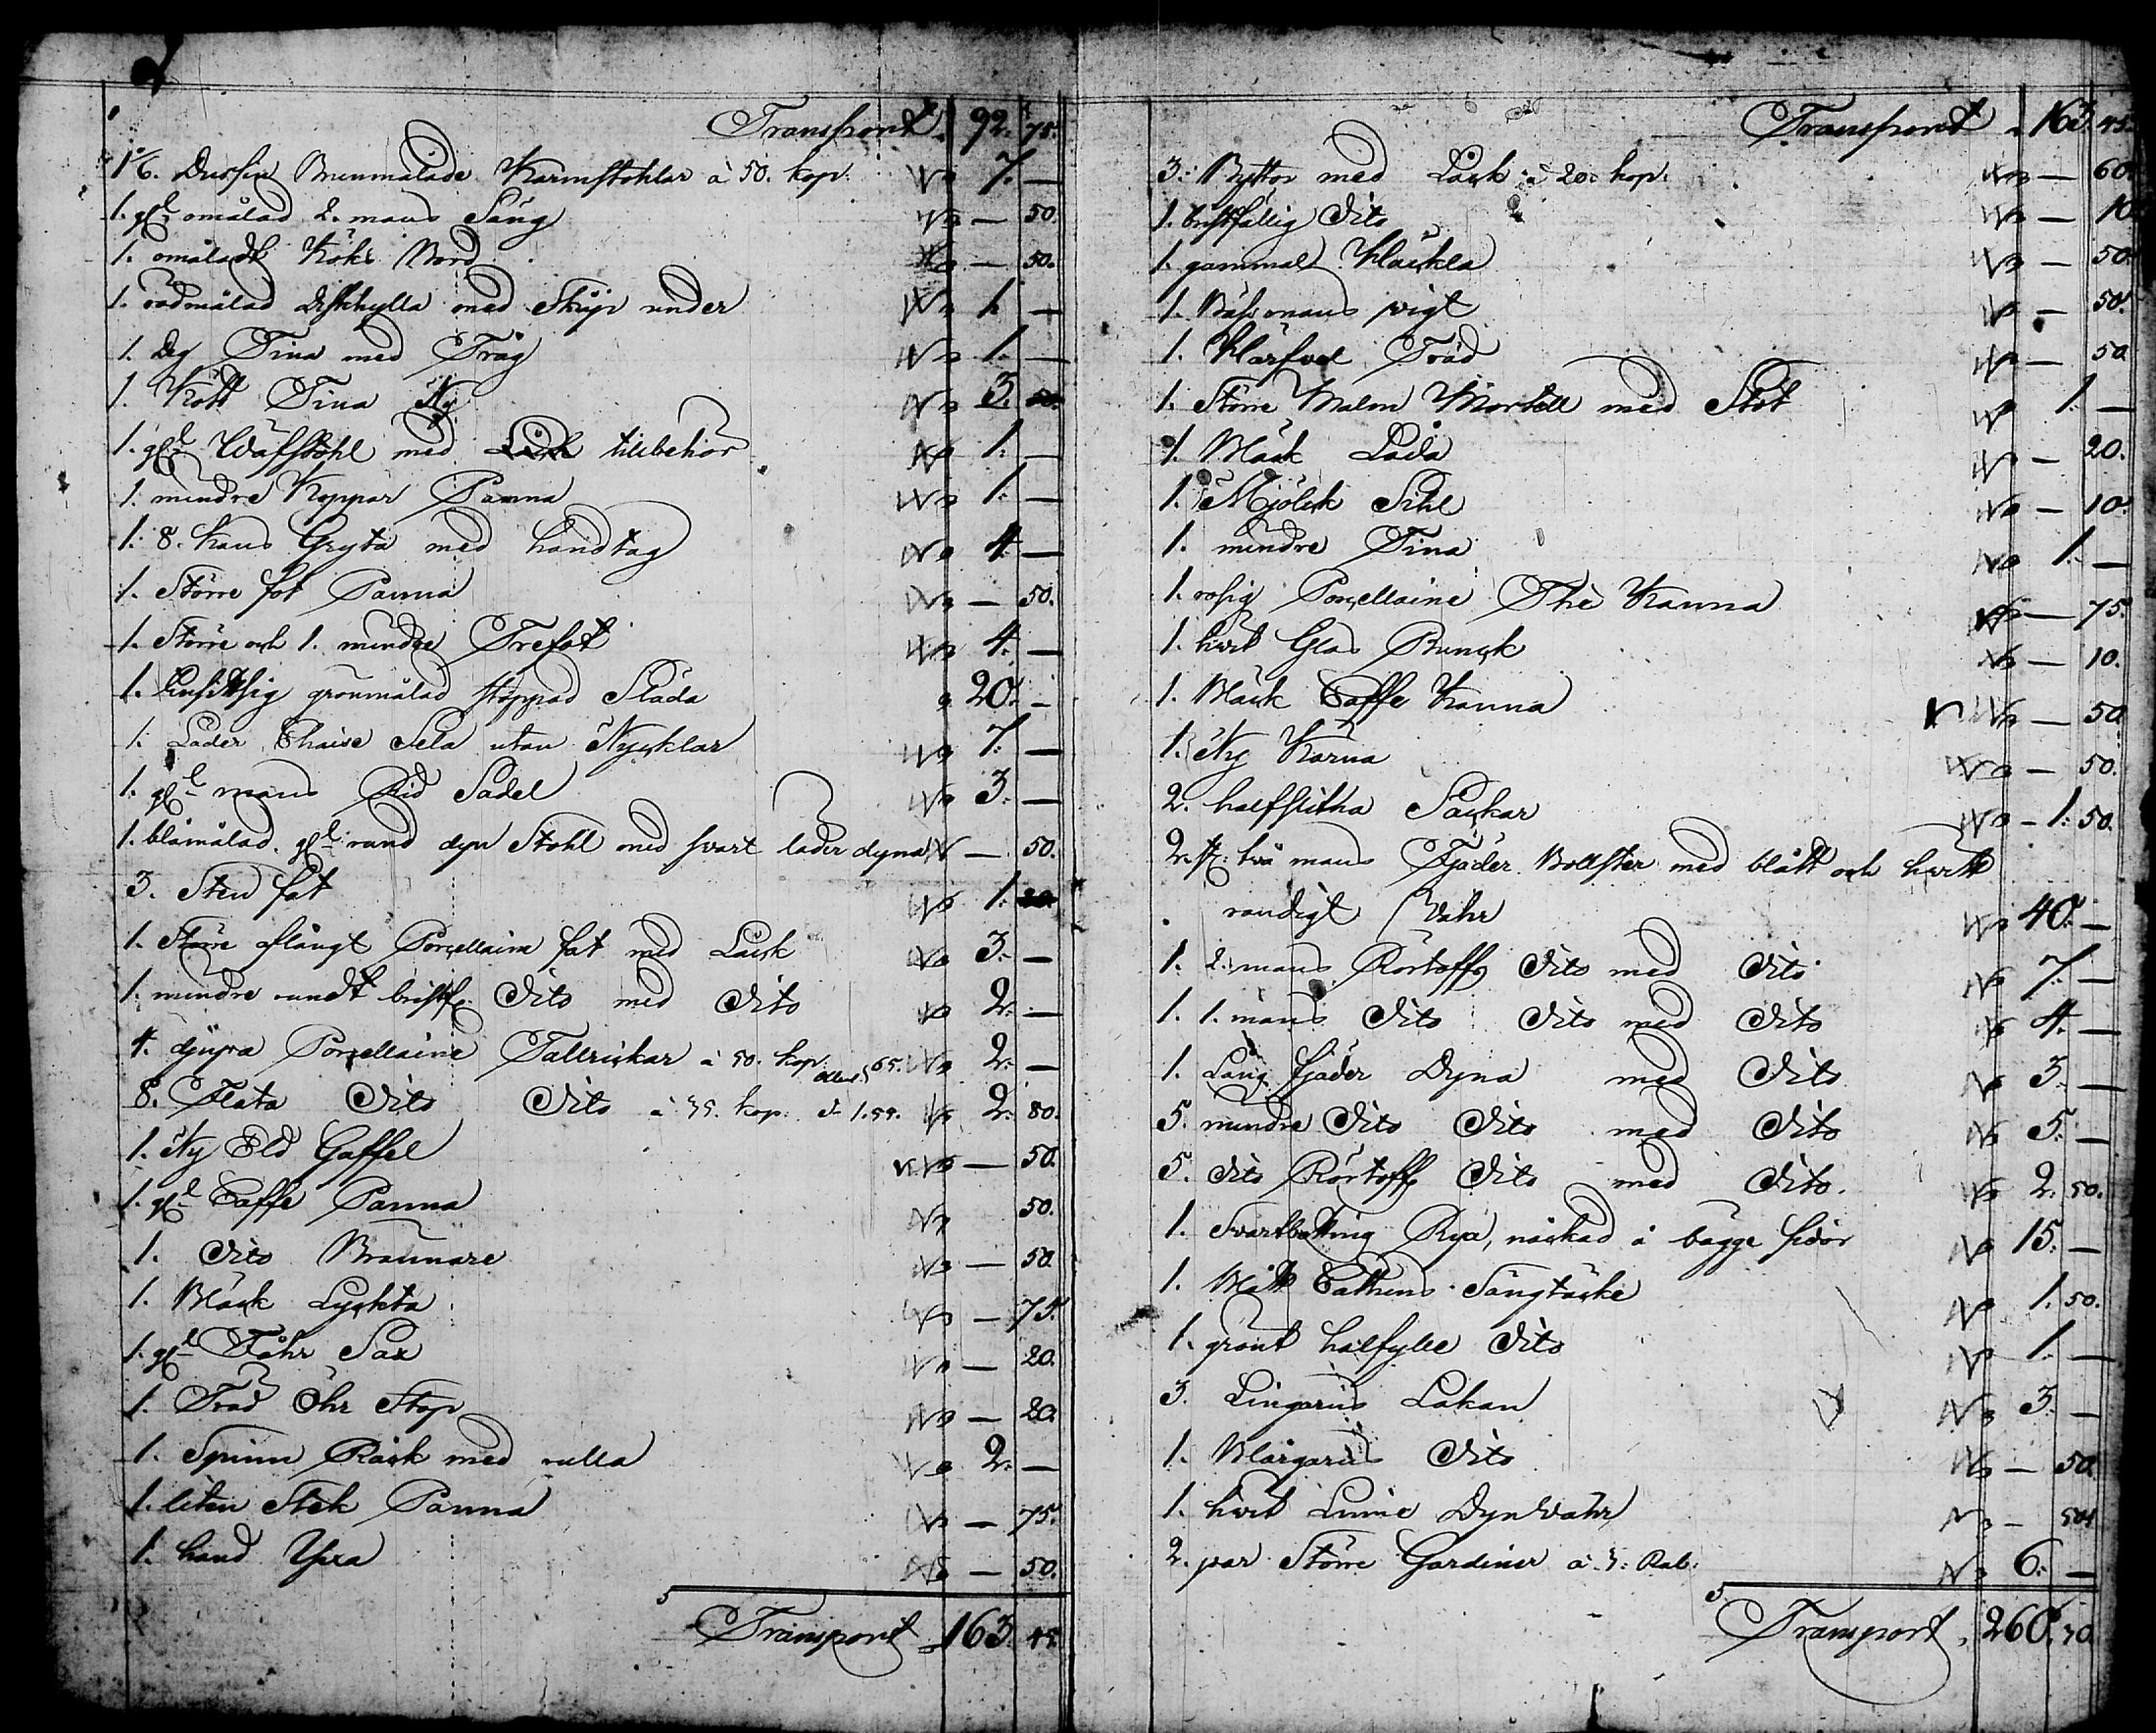 Transport 92. 75.
1 1/6. Dussin Brunmålade Karmstohlar à 50. kop. 7. —
1. gl omålad 2. mans Säng — 50.
1. omåladt Köks Bord — 50.
1. rödmålad Diskhylla med Skåp under 1. —
1. Deg Tina med Tråg 1. —
1. Kött Tina Ny 3.
1. gl Wäfstohl med tillbehör 1. —
1. mindre Koppar Panna 1. —
1. 8. kans Gryta med handtag 4. —
1. Större fot Panna — 50.
1. Större och 1. mindre Trefot 4. —
1. grönmålad stoppad Släda 20. —
1. Läder Chaise Sela utan Nycklar 7. —
1. gl mans Rid Sadel 3. —
1. blåmålad gl rund Stohl med svart läder dyna — 50.
3. Sten fat 1.
1. Större aflångt Porcellaine fat med Låck 3. —
1. mindre rundt bristf. Dito med Dito 2. —
4. djupa Porcellaine Tallrickar à 50. kop. 65. 2. —
8. Flata Dito Dito à 35. kop. 2. 80.
1. Ny Eld Gaffel — 50.
1. gl Caffe Panna 50.
1. Dito Brännare — 50.
1. Bläck Lyckta — 75.
1. gl Fåhr Sax — 20.
1. Träd Öhr Stop — 20.
1. Spinn Råck med rulla 2. —
1. liten Stek Panna — 75.
1. hand Yxa — 50.
Transport 163. 45.
Transport 163. 45.
3. Byttor med Låck à 20. kop. — 60.
1. bristfällig Dito — 10.
1. gammal Häckla — 50.
1. Båssmans vigt — 50.
1. Härfvel Träd — 50.
1. Större Malm Mortell med Stöt 1. —
1. Bläck Låda — 20.
1. Mjölck Sihl — 10.
1. mindre Tina 1. —
1. rosig Porcellaine The Kanna — 75.
1. hvit Glas Bunck — 10.
1. Bläck Caffe Kanna — 50.
1. Ny Kärna — 50.
2. halfslitna Säckar — 1. 50.
2. st. två mans Fjäder Bollster med blått och hvitt
randigt Vahr 40. —
1. 2. mans Rörtoffs Dito med Dito 7. —
1. 1. mans Dito Dito med Dito 4. —
1. Lång fjäder Dyna med Dito 3. —
5. mindre Dito Dito med Dito 5. —
5. Dito Rörtoffs Dito med Dito. 2. 50.
1. Svartbotting Rya, näckad å bägge sidor 15. —
1. Blått Cattuns Sängtäcke 1. 50.
1. grönt halfylle Dito 1. —
3. Lingarns Lakan 3. —
1. Blårgarns Dito — 50.
1. hvit Linne Dyn Vahr — 50.
2. par Större Gardiner à 3. Rub. 6. —
Transport 260. 30.